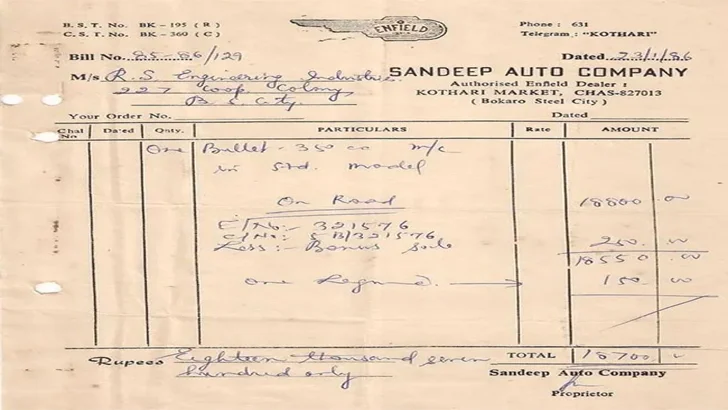 B. S. T. No. BK - 195 ( R )
C. S. T. No. BK - 360 ( C )
ENFIELD
Phone : 631
Telegram : "KOTHARI"
Bill No. 85-86/129
Dated 23/1/86
M/s R. S. Engineering Industries.
227 Coop. Colony,
B. S. City.
SANDEEP AUTO COMPANY
Authorised Enfield Dealer :
KOTHARI MARKET, CHAS-827013
( Bokaro Steel City )
Your Order No.
Dated
Chal No Dated Qnty. PARTICULARS Rate AMOUNT
One Bullet - 350 cc m/c
in Std. model
On Road 18800.00
E/No:- 321576
C/No:- 5 B/321576
Less:- Bonus 250.00
18550.00
One Legguard. 150.00
Rupees Eighteen thousand seven
hundred only
TOTAL 18700.
Sandeep Auto Company
Proprietor